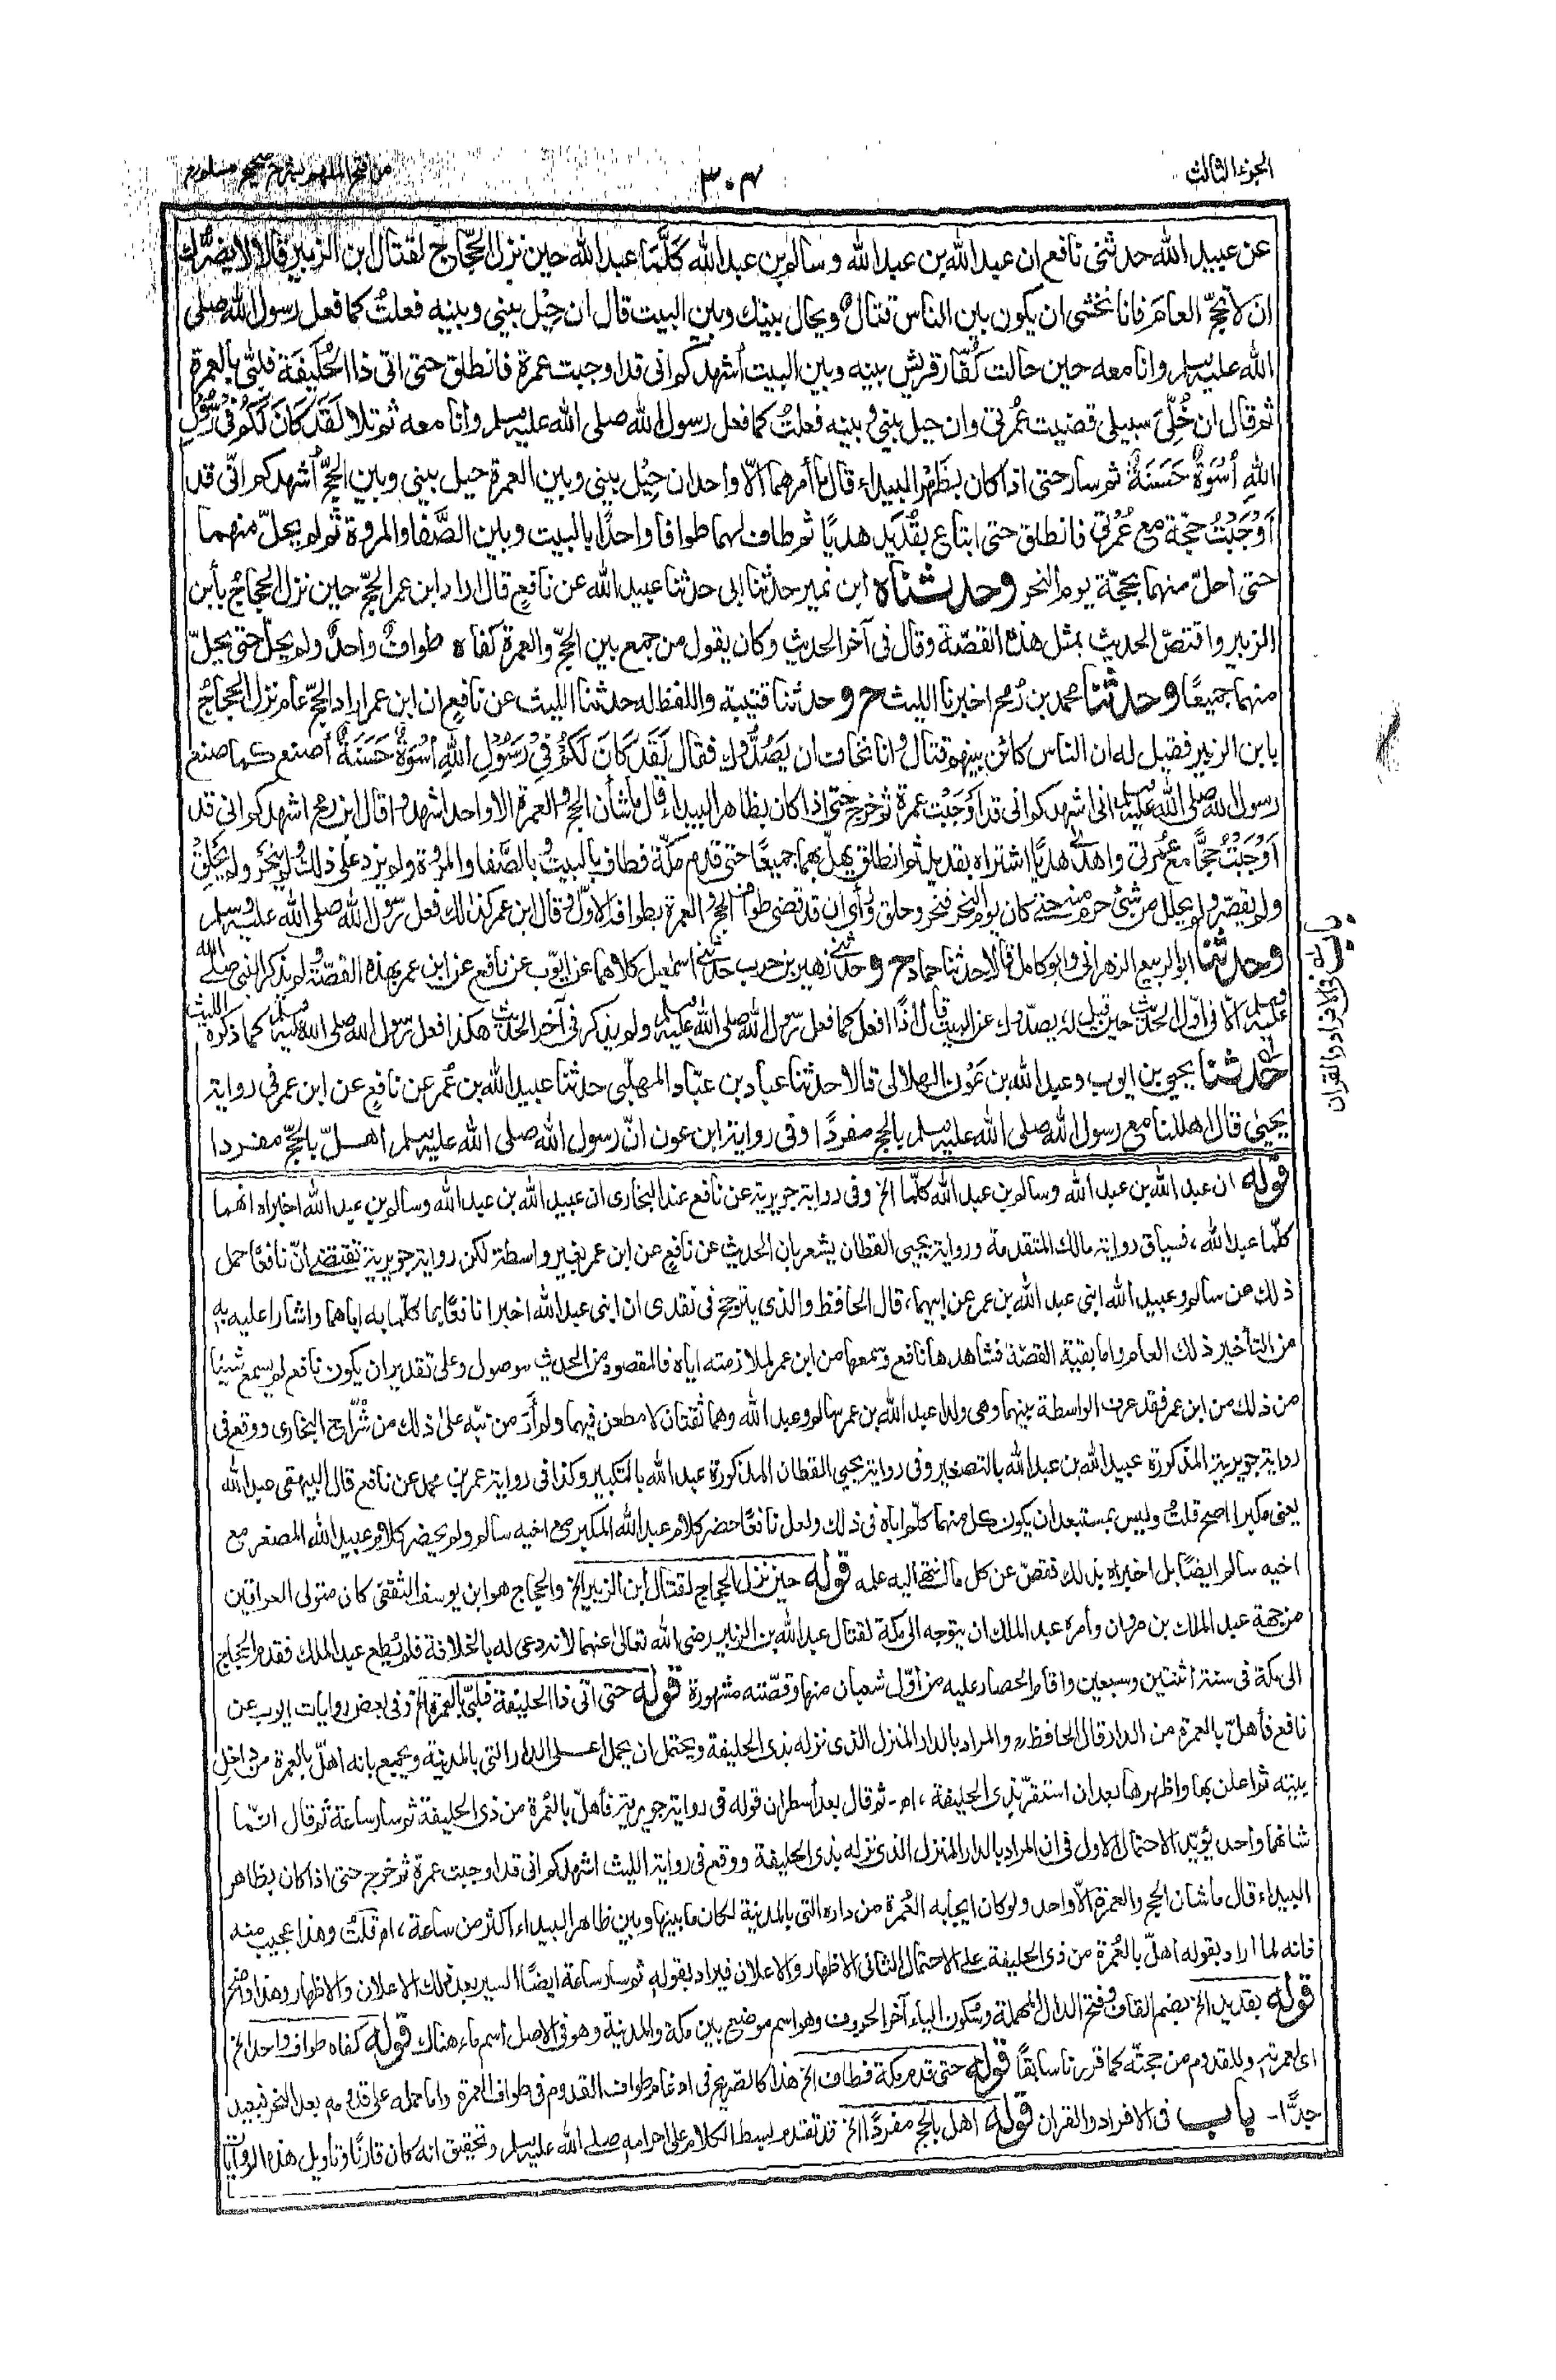 الجزء الثالث
٣٠٤
من فتح الملهم بشرح صحيح مسلم
عن عبيد الله حدثنى نافع ان عبد الله بن عبد الله وسالم بن عبد الله كَلَّمَا عبد الله حين نزل الحجّاج لقتال ابن الزبير قالا لا يضرّك
ان لا تحجّ العامَ فانا نخشى ان يكون بين الناس قتالٌ ويحال بينك وبين البيت قال ان حِيْل بينى وبينه فعلتُ كما فعل رسول الله صلى
الله عليه وسلم وانا معه حين حالت كُفّار قريش بينه وبين البيت أشهدكم انى قد اوجبت عمرة فانطلق حتى اتى ذا الحُلَيفَة فلبّى بالعمرة
ثم قال ان خُلِّىَ سبيلى قضيت عُمرتى وان حيل بينى وبينه فعلتُ كما فعل رسول الله صلى الله عليه وسلم وانا معه ثم تلا لَقَدْ كَانَ لَكُمْ فِىْ رَسُوْلِ
اللهِ اُسْوَةٌ حَسَنَةٌ ثم سار حتى اذا كان بظَهْر البيداء قال ما أمرهما الّا واحد ان حِيْل بينى وبين العمرة حيل بينى وبين الحجّ أشهدكم انّى قد
اَوْجَبْتُ حجّة مع عُمْرتى فانطلق حتى ابتاع بقُدَيْد هديًا ثم طاف لهما طوافا واحدًا بالبيت وبين الصَّفا والمروة ثم لم يحلّ منهما
حتى احلّ منهما بحجّة يوم النحر وحدثناه ابن نمير حدثنا ابى حدثنا عبيد الله عن نافع قال اراد ابن عمر الحجّ حين نزل الحجاج بأبن
الزبير واقتصّ الحديث بمثل هذه القصّة وقال فى آخر الحديث وكان يقول من جمع بين الحجّ والعمرة كفاه طوافٌ واحدٌ ولم يحلّ حتى يحلّ
منهما جميعًا وحدثنا محمد بن رُمح اخبرنا الليث ح وحدثنا قتيبة واللفظ له حدثنا الليث عن نافع ان ابن عمر اراد الحجّ عام نزل الحجاجُ
بابن الزبير فقيل له ان الناس كائن بينهم قتالٌ وانا نخاف ان يَصُدُّوك فقال لَقَدْ كَانَ لَكُمْ فِىْ رَسُوْلِ اللهِ اُسْوَةٌ حَسَنَةٌ أصنع كما صنع
رسول الله صلى الله عليه وسلم انى اشهدكم انى قد اَوْجَبْت عمرة ثم خرج حتى اذا كان بظاهر البيداء قال ما شأن الحج والعمرة الا واحد اشهدوا قال ابن رمح اشهدكم انى قد
اَوْجَبْتُ حجًّا مع عُمرتى واهدى هديًا اشتراه بقديد ثم انطلق يهلّ بهما جميعًا حتى قدم مكّة فطاف بالبيت وبالصَّفا والمروة ولم يزد على ذلك ولم ينحَر ولم يَحْلِقْ
ولم يقصّر ولم يحلل من شئ حرم منه حتى كان يوم النحر فنحر وحلق ورأى ان قد قضى طواف الحج والعمرة بطوافه الاوّل وقال ابن عمر كذلك فعل رسول الله صلى الله عليه وسلم
وحدثنا ابو الربيع الزهرانى وابو كامل قالا حدثنا حماد ح وحدثنى زهير بن حرب حدثنى اسمعيل كلاهما عن ايوّب عن نافع عن ابن عمر بهذه القصّة ولم يذكر النبى صلى الله
عليه وسلم الّا فى اوّل الحديث حين قيل له يصدّوك عن البيت قال اذًا افعل كما فعل رسول الله صلى الله عليه وسلم ولم يذكر فى آخر الحديث هكذا فعل رسول الله صلى الله عليه وسلم كما ذكره الليث
حدثنا يحيى بن ايوب وعبد الله بن عَوْن الهلالى قالا حدثنا عباد بن عبّاد المهلّبى حدثنا عبيد الله بن عُمر عن نافع عن ابن عمر فى رواية
يحيى قال اهللنا مع رسول الله صلى الله عليه وسلم بالحج مفردًا وفى رواية ابن عون انّ رسول الله صلى الله عليه وسلم اهلّ بالحجّ مفردا
باب فى الافراد والقران
قوله ان عبد الله بن عبد الله وسالم بن عبد الله كلّما الخ وفى رواية جويرية عن نافع عند البخارى ان عبيد الله بن عبد الله وسالم بن عبد الله اخبراه انهما
كلّما عبد الله، فسياق رواية مالك المتقدمة ورواية يحيى القطان يشعر بان الحديث عن نافع عن ابن عمر بغير واسطة لكن رواية جويرية تقتضى انّ نافعًا حمل
ذلك عن سالم وعبيد الله ابنى عبد الله بن عمر عن ابيهما، قال الحافظ والذى يترجح فى نقدى ان ابنى عبد الله اخبرا نافعًا بما كلّما به اباهما واشارا عليه به
من التأخير ذلك العام واما بقية القصّة فشاهدها نافع وسمعها من ابن عمر لملازمته اياه فالمقصود من الحديث موصول وعلى تقدير ان يكون نافع لم يسمع شيئا
من ذلك من ابن عمر فقد عرف الواسطة بينهما وهى ولدا عبد الله بن عمر سالم وعبد الله وهما ثقتان لا مطعن فيهما ولم أرَ من نبّه على ذلك من شُرّاح البخارى ووقع فى
رواية جويرية المذكورة عبيد الله بن عبد الله بالتصغير وفى رواية يحيى القطان المذكورة عبد الله بالتكبير وكذا فى رواية عمر بن محمد عن نافع قال البيهقى عبد الله
يعنى مكبرا اصح قلتُ وليس بمستبعد ان يكون كل منهما كلّم اباه فى ذلك ولعل نافعًا حضر كلام عبد الله المكبر مع اخيه سالم ولم يحضر كلام عبيد الله المصغر مع
اخيه سالم ايضًا بل اخبراه بذلك فقصّ عن كل ما انتهى اليه علمه قوله حين نزل الحجاج لقتال ابن الزبير الخ والحجاج هو ابن يوسف الثقفى كان متولى العراقين
من جهة عبد الملك بن مروان وأمره عبد الملك ان يتوجه الى مكة لقتال عبد الله بن الزبير رضى الله تعالى عنهما لانه دعى له بالخلافة فلم يُطع عبد الملك فقدم الحجاج
الى مكة فى سنة اثنتين وسبعين واقام الحصار عليه من اوّل شعبان منها وقصّته مشهورة قوله حتى اتى ذا الحليفة فلبّى بالعمرة الخ وفى بعض روايات ايوب عن
نافع فأهلّ بالعمرة من الدار قال الحافظ رح والمراد بالدار المنزل الذى نزله بذى الحليفة ويحتمل ان يحمل على الدار التى بالمدينة ويجمع بانه اهلّ بالعمرة من داخل
بيته ثم اعلن بها واظهرها بعد ان استقرّ بذى الحليفة، اه‍ - ثم قال بعد أسطر ان قوله فى رواية جويرية فأهلّ بالعُمرة من ذى الحليفة ثم سار ساعة ثم قال انّما
شانهما واحد يؤيّد الاحتمال الاول فى ان المراد بالدار المنزل الذى نزله بذى الحليفة ووقع فى رواية الليث اشهدكم انى قد اوجبت عمرة ثم خرج حتى اذا كان بظاهر
البيداء قال ما شان الحج والعمرة الّا واحد ولو كان ايجابه العُمرة من داره التى بالمدينة لكان ما بينها وبين ظاهر البيداء اكثر من ساعة، اه‍ قلتُ وهذا عجيب منه
فانه لما اراد بقوله اهلّ بالعُمرة من ذى الحليفة على الاحتمال الثانى الاظهار والاعلان فيراد بقوله ثم سار ساعة ايضًا السير بعد ذلك الاعلان والاظهار وهذا واضح
قوله بقديد الخ بضم القاف وفتح الدال المهملة وسُكون الياء آخر الحروف وهو اسم موضع بين مكة والمدينة وهو فى الاصل اسم ماء هناك قوله كفاه طواف واحد الخ
اى لعمرته وللقدوم من حجته كما قررنا سابقًا قوله حتى قدم مكة فطاف الخ هذا كالصريح فى ادغام طواف القدوم فى طواف العمرة واما حمله على قدومه بعد النحر فبعيد
جدًّا- باب فى الافراد والقران قوله اهل بالحج مفردًا الخ قد تقدم بسط الكلام على احرامه صلى الله عليه وسلم وتحقيق انه كان قارنًا وتأويل هذه الروايات